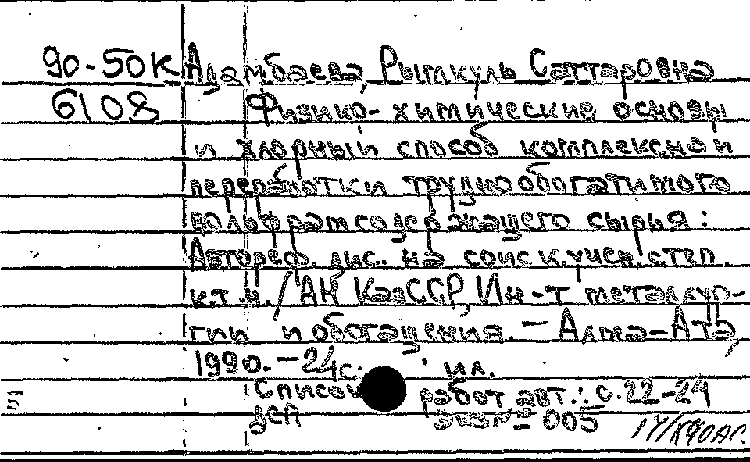 90-50К Адамбаева Рыткуль Саттаровна
6108 Физико-химические основы
и хлорный способ комплексной
переработки труднообогатимого
вольфрамсодержащего сырья:
Автореф. дис. на соиск. учен. степ.
к.т.н. / АН КазССР, Ин-т металлур-
гии и обогащения. — Алма-Ата,
1990. - 24 с. ил.
Список работ авт.: с. 22-24
005